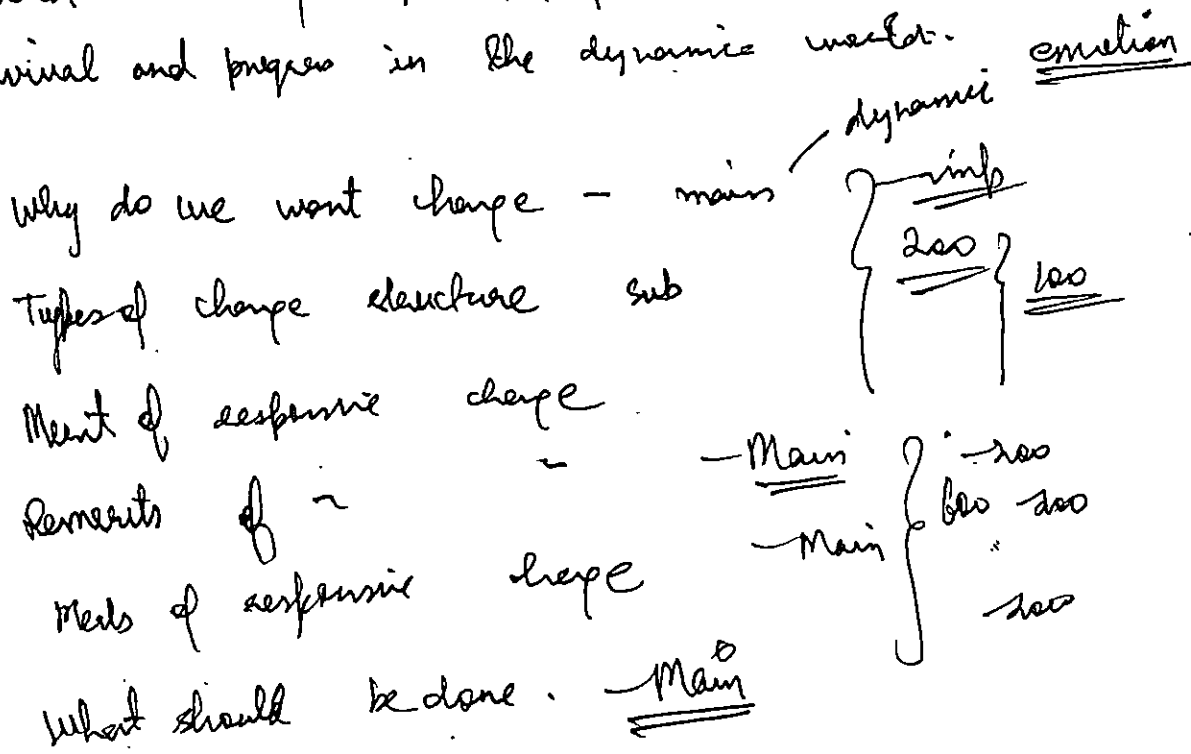 and progress in the dynamic world. emotion
dynamic
Why do we want change – main imp
200
Types of change structure sub 100
Merit of responsive change
Demerits of ~ ~ – Main – 200
600 – 200
– Main
Merits of responsive change – 200
What should be done. – Main